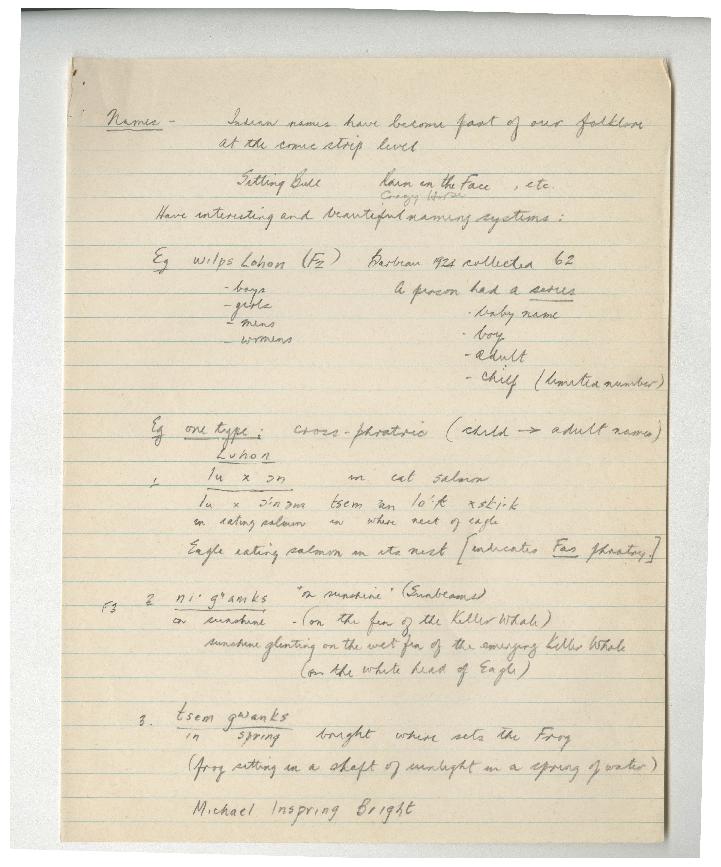 Names - Indian names have become part of our folklore
at the comic strip level
Sitting Bull Rain in the Face, etc.
Crazy Horse
Have interesting and beautiful naming systems:
Eg wilps Luhon (F2) Barbeau 1924 collected 62
- boys
- girls
- mens
- womens
A person had a series
- baby name
- boy
- adult
- chief (limited number)
Eg one type: cross-phratric (child → adult names)
Luhon
1. lu x ɔn in eat salmon
lu x tsem an xski·k
in eating salmon in where nest of eagle
Eagle eating salmon in its nest [indicates phratry.]
F3 2. ni· gʷanks "on sunshine" (Sunbeams)
on sunshine - (on the fin of the Killer Whale)
sunshine glinting on the wet fin of the emerging Killer Whale
(on the white head of Eagle)
3. tsem gʷanks
in spring bright where sets the Frog
(frog sitting in a shaft of sunlight in a spring of water)
Michael Inspring Bright